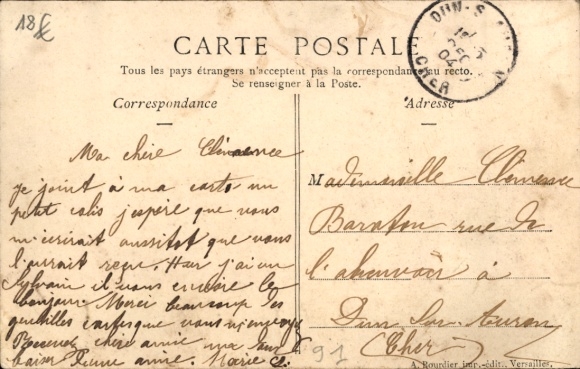 18€
CARTE POSTALE
Tous les pays étrangers n'acceptent pas la correspondance au recto.
Se renseigner à la Poste.
Correspondance
Adresse
DUN-S
DEC
04
CHER
Ma chère Clémence
je joint à ma carte un
petit colis j'espère que vous
m'écrirait aussitot que vous
l'aurrait reçu. Hier j'ai vu
Sylvain il vous envoie le
bonjour. Merci beaucoup les
gentilles cartes que vous m'envoyez
Recevez chère amie ma
baiser d'une amie. Marie C.
Mademoiselle Clémence
Baraton rue de
l'abreuvoir à
Dun sur Auron
Cher
91
A. Bourdier imp.-édit., Versailles.